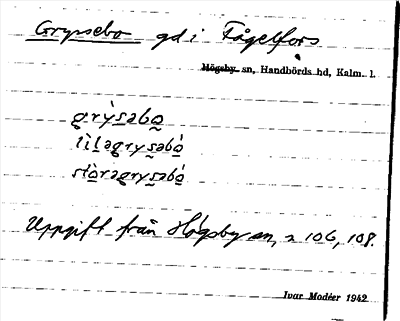 Grypsebo gd i Fågelfors
Högsby sn, Handbörds hd, Kalm. l.
grỳsəbo̤
lìləgrysəbó
stòrəgrysəbó
Uppgift från Högsby sn, s 106, 108.
Ivar Modéer 1942